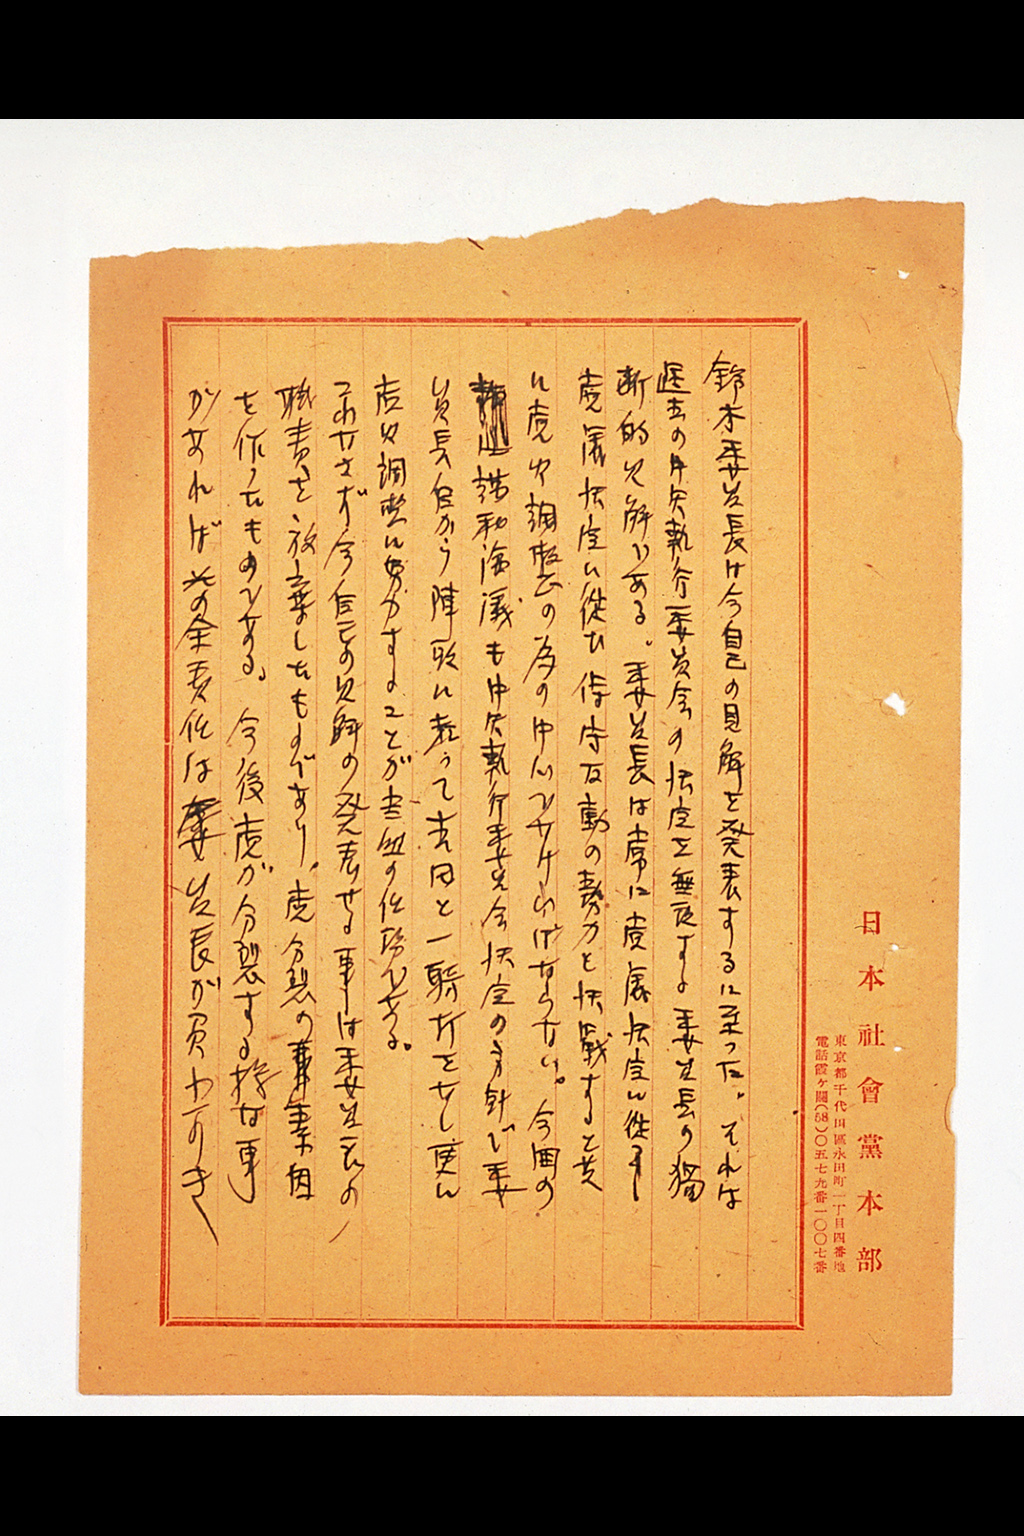 日本社會黨本部
東京都千代田區永田町一丁目四番地
電話霞ヶ關(58)〇五七九番一〇〇七番
鈴木委員長は今自己の見解を発表するに至つた。それは
過去の中央執行委員会の決定を無視する委員長の独
断的見解である。委員長は常に党議決定に従
党議決定に従ひ保守反動の勢力と決戦すると共
に党内調整の為の中心でなければならない。今回の
講和論議も中央執行委員会決定の方針で委
員長自から陣頭に起つて吉田と一騎打をなし更に
党内調整に努力することが当然の任務である。
これなさず今自己の見解の発表せる事は委員長の
職責を放棄したものであり、党分裂の素因
を作つたものである。今後党が分裂する様な事
があれば其の全責任は委員長が負わ可き